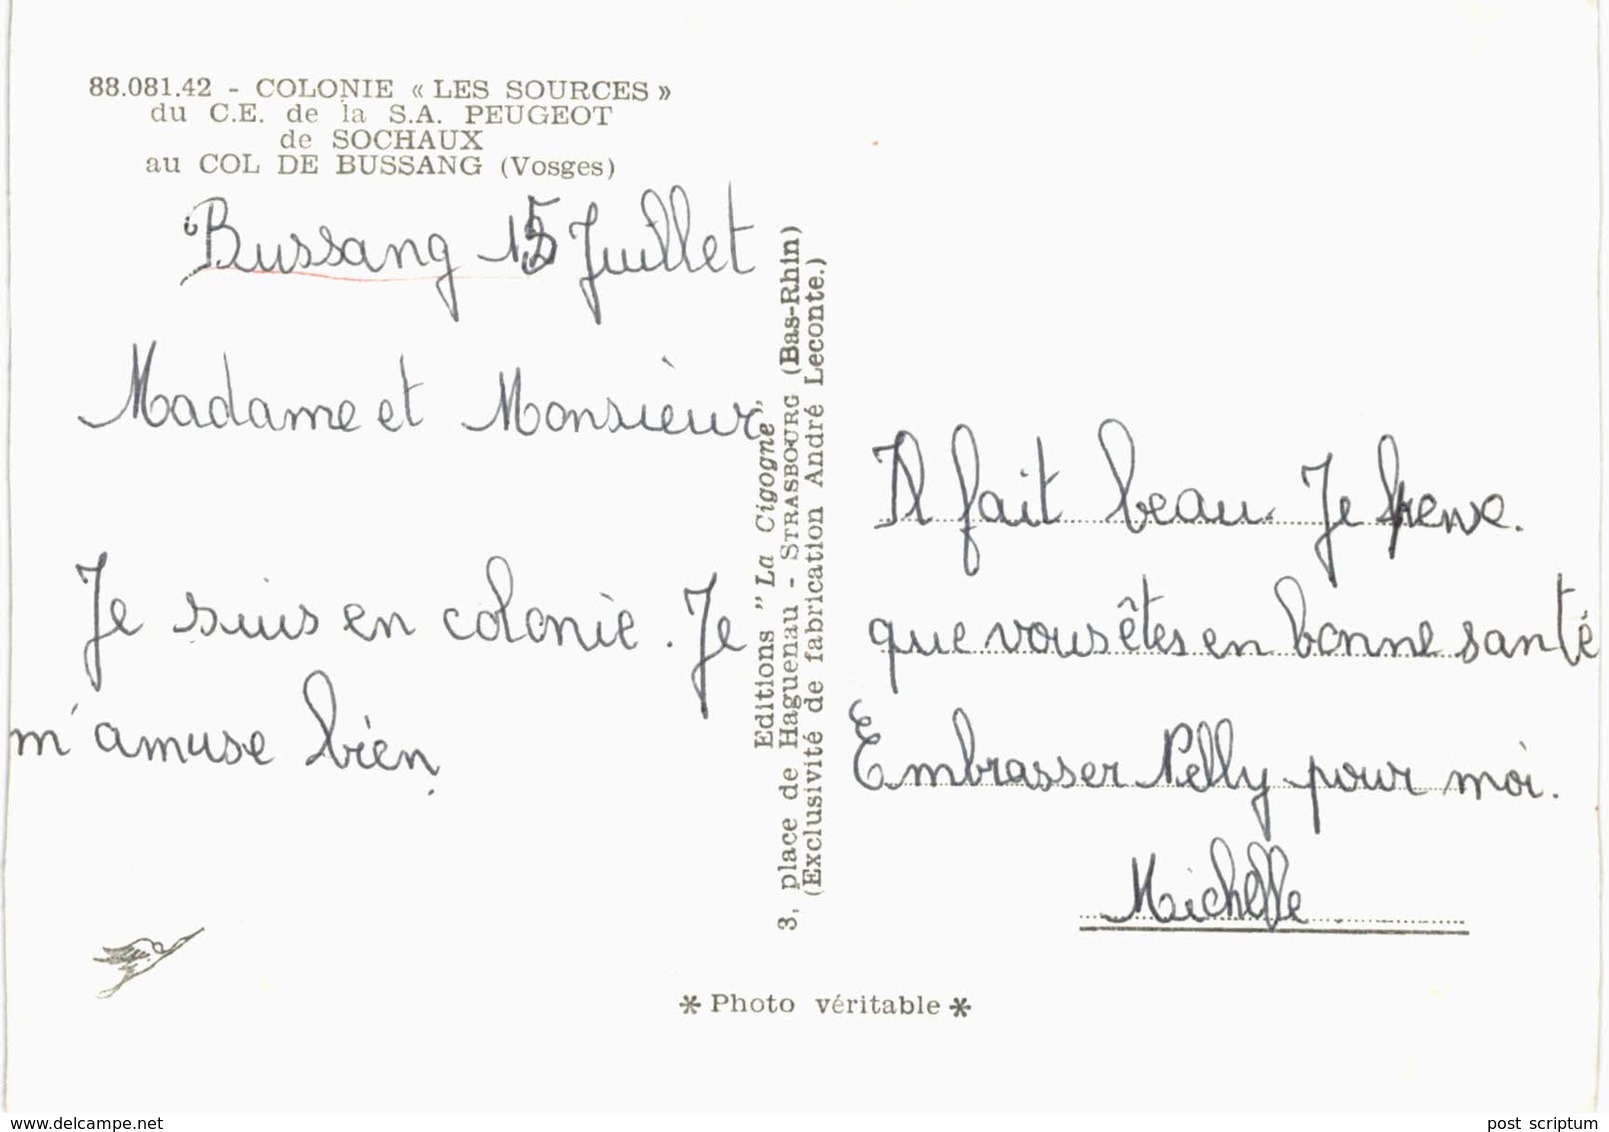 88.081.42 - COLONIE « LES SOURCES »
du C.E. de la S.A. PEUGEOT
de SOCHAUX
au COL DE BUSSANG (Vosges)
Bussang 15 Juillet
Madame et Monsieur
Je suis en colonie. Je
m'amuse bien.
Editions "La Cigogne"
3, place de Haguenau - STRASBOURG (Bas-Rhin)
(Exclusivité de fabrication André Leconte.)
Il fait beau. Je pense.
que vous êtes en bonne santé
Embrasser Pelly pour moi.
Michelle
* Photo véritable *
www.delcampe.net
post scriptum